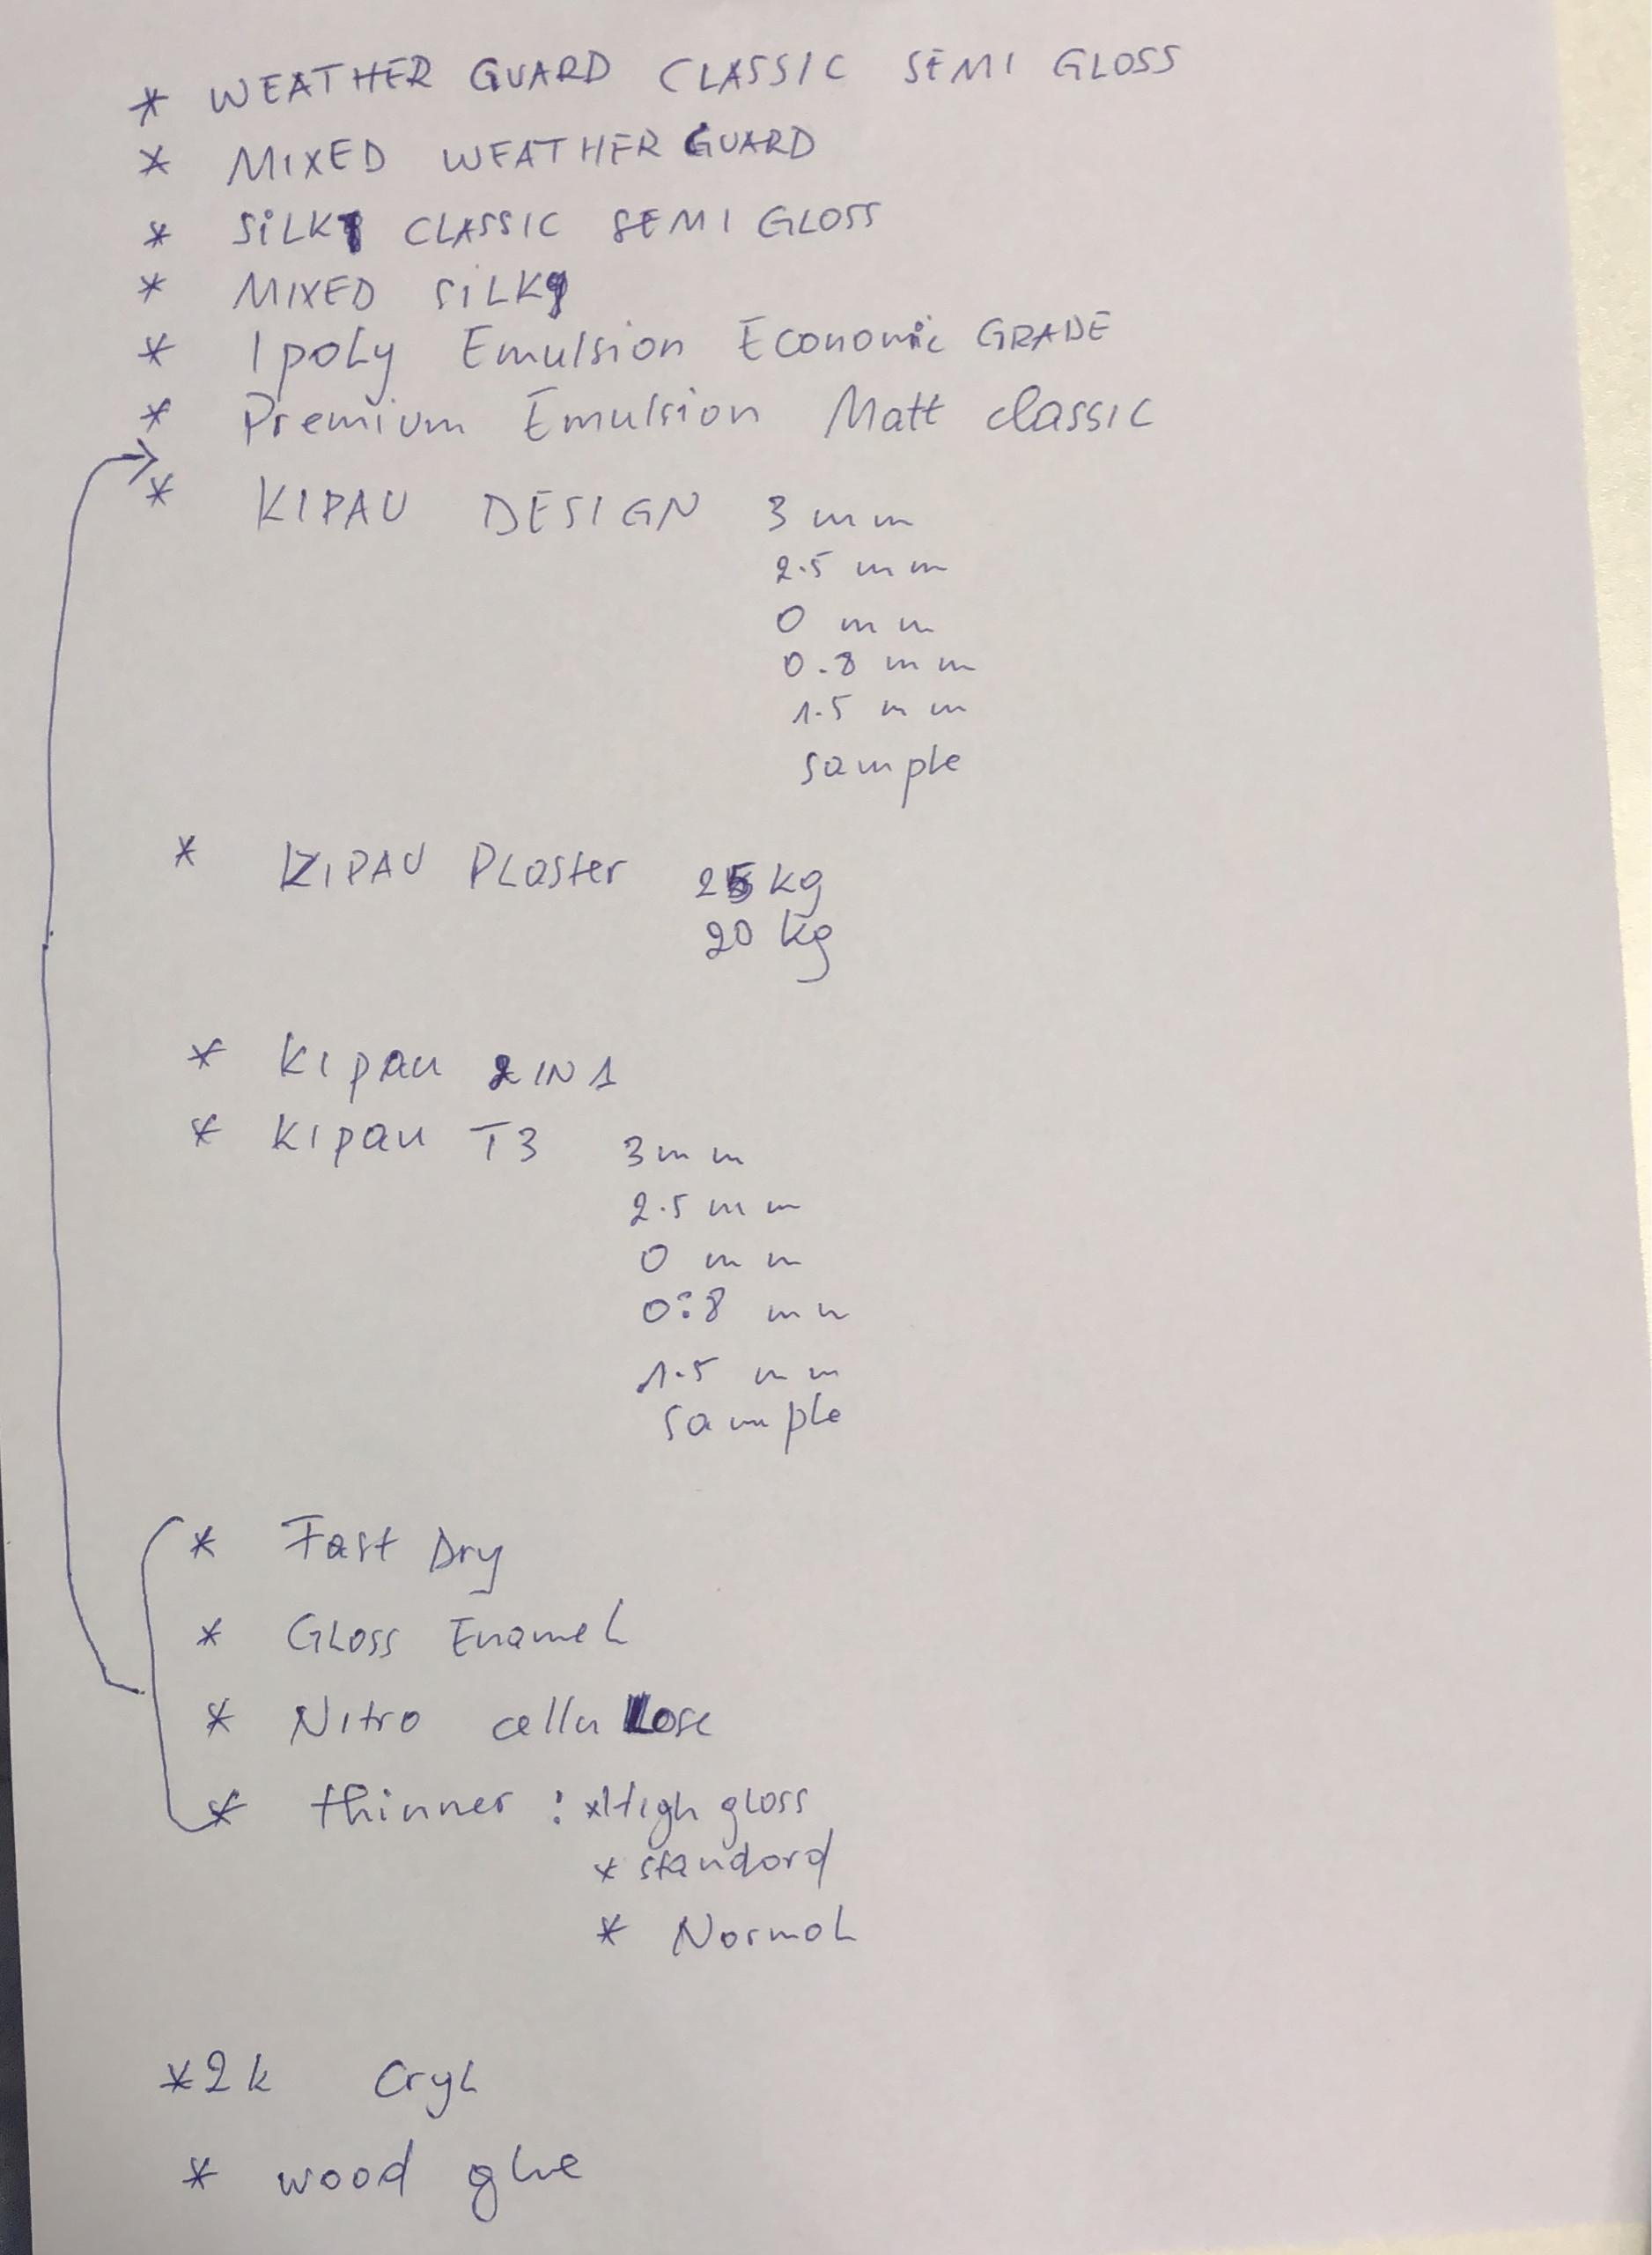 * WEATHER GUARD CLASSIC SEMI GLOSS
* MIXED WEATHER GUARD
* SiLKY CLASSIC SEMI GLOSS
* MIXED SiLKy
* 1 poLy Emulsion Economic GRADE
* Premium Emulsion Matt classic
* KIPAU DESIGN 3 mm
2.5 mm
0 mm
0.8 mm
1.5 mm
sample
* KIPAU PLaster 25 kg
20 kg
* Kipau 2 IN 1
* Kipau T3 3 mm
2.5 mm
0 mm
0.8 mm
1.5 mm
sample
* Fast Dry
* GLoss EnameL
* Nitro celluLose
* thinner : * High gloss
* standard
* NormaL
* 2k CryL
* wood glue